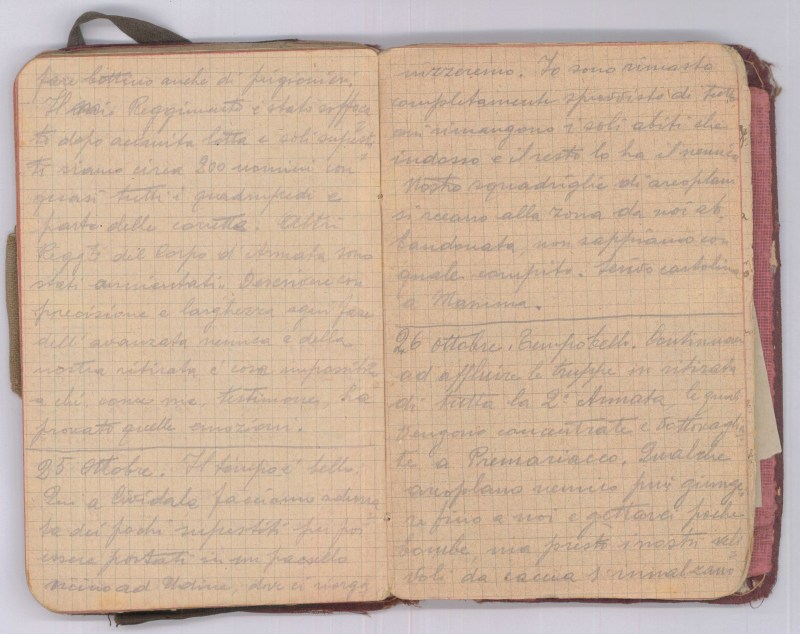 fare bottino anche di prigionieri.
Il mio Reggimento è stato soffoca
to dopo accanita lotta e soli supersti
ti siamo circa 200 uomini con
quasi tutti i quadrupedi e
parte delle carrette. Altri
Regg.ti del Corpo d'Armata sono
stati annientati. Descrivere con
precisione e larghezza ogni fase
dell'avanzata nemica e della
nostra ritirata è cosa impossibile
a chi come me, testimone, ha
provato quelle emozioni.
25 Ottobre. Il tempo è bello.
Qui a Cividale facciamo aduna
ta dei pochi superstiti per poi
essere portati in un paesello
vicino ad Udine, dove ci riorga
nizzeremo. Io sono rimasto
completamente sprovvisto di tutto
mi rimangono i soli abiti che
indosso e il resto lo ha il nemico
Nostre squadriglie di areoplani
si recano alla zona da noi ab
bandonata, non sappiamo con
quale compito. Scrivo cartolina
a Mamma.
26 Ottobre. Tempo bello. Continuano
ad affluire le truppe in ritirata
di tutta la 2ª Armata, le quali
vengono concentrate e vettovaglia
te a Premariacco. Qualche
areoplano nemico può giunge
re fino a noi e gettarci poche
bombe, ma presto i nostri veli
voli da caccia s'innalzano